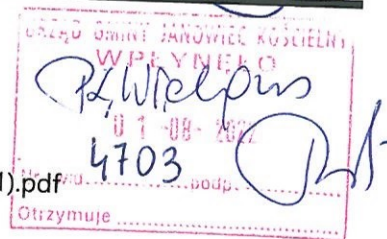 URZĄD GMINY JANOWIEC KOŚCIELNY
WPŁYNĘŁO
01 -08- 2022
4703
1).pdf
podp.
Otrzymuje